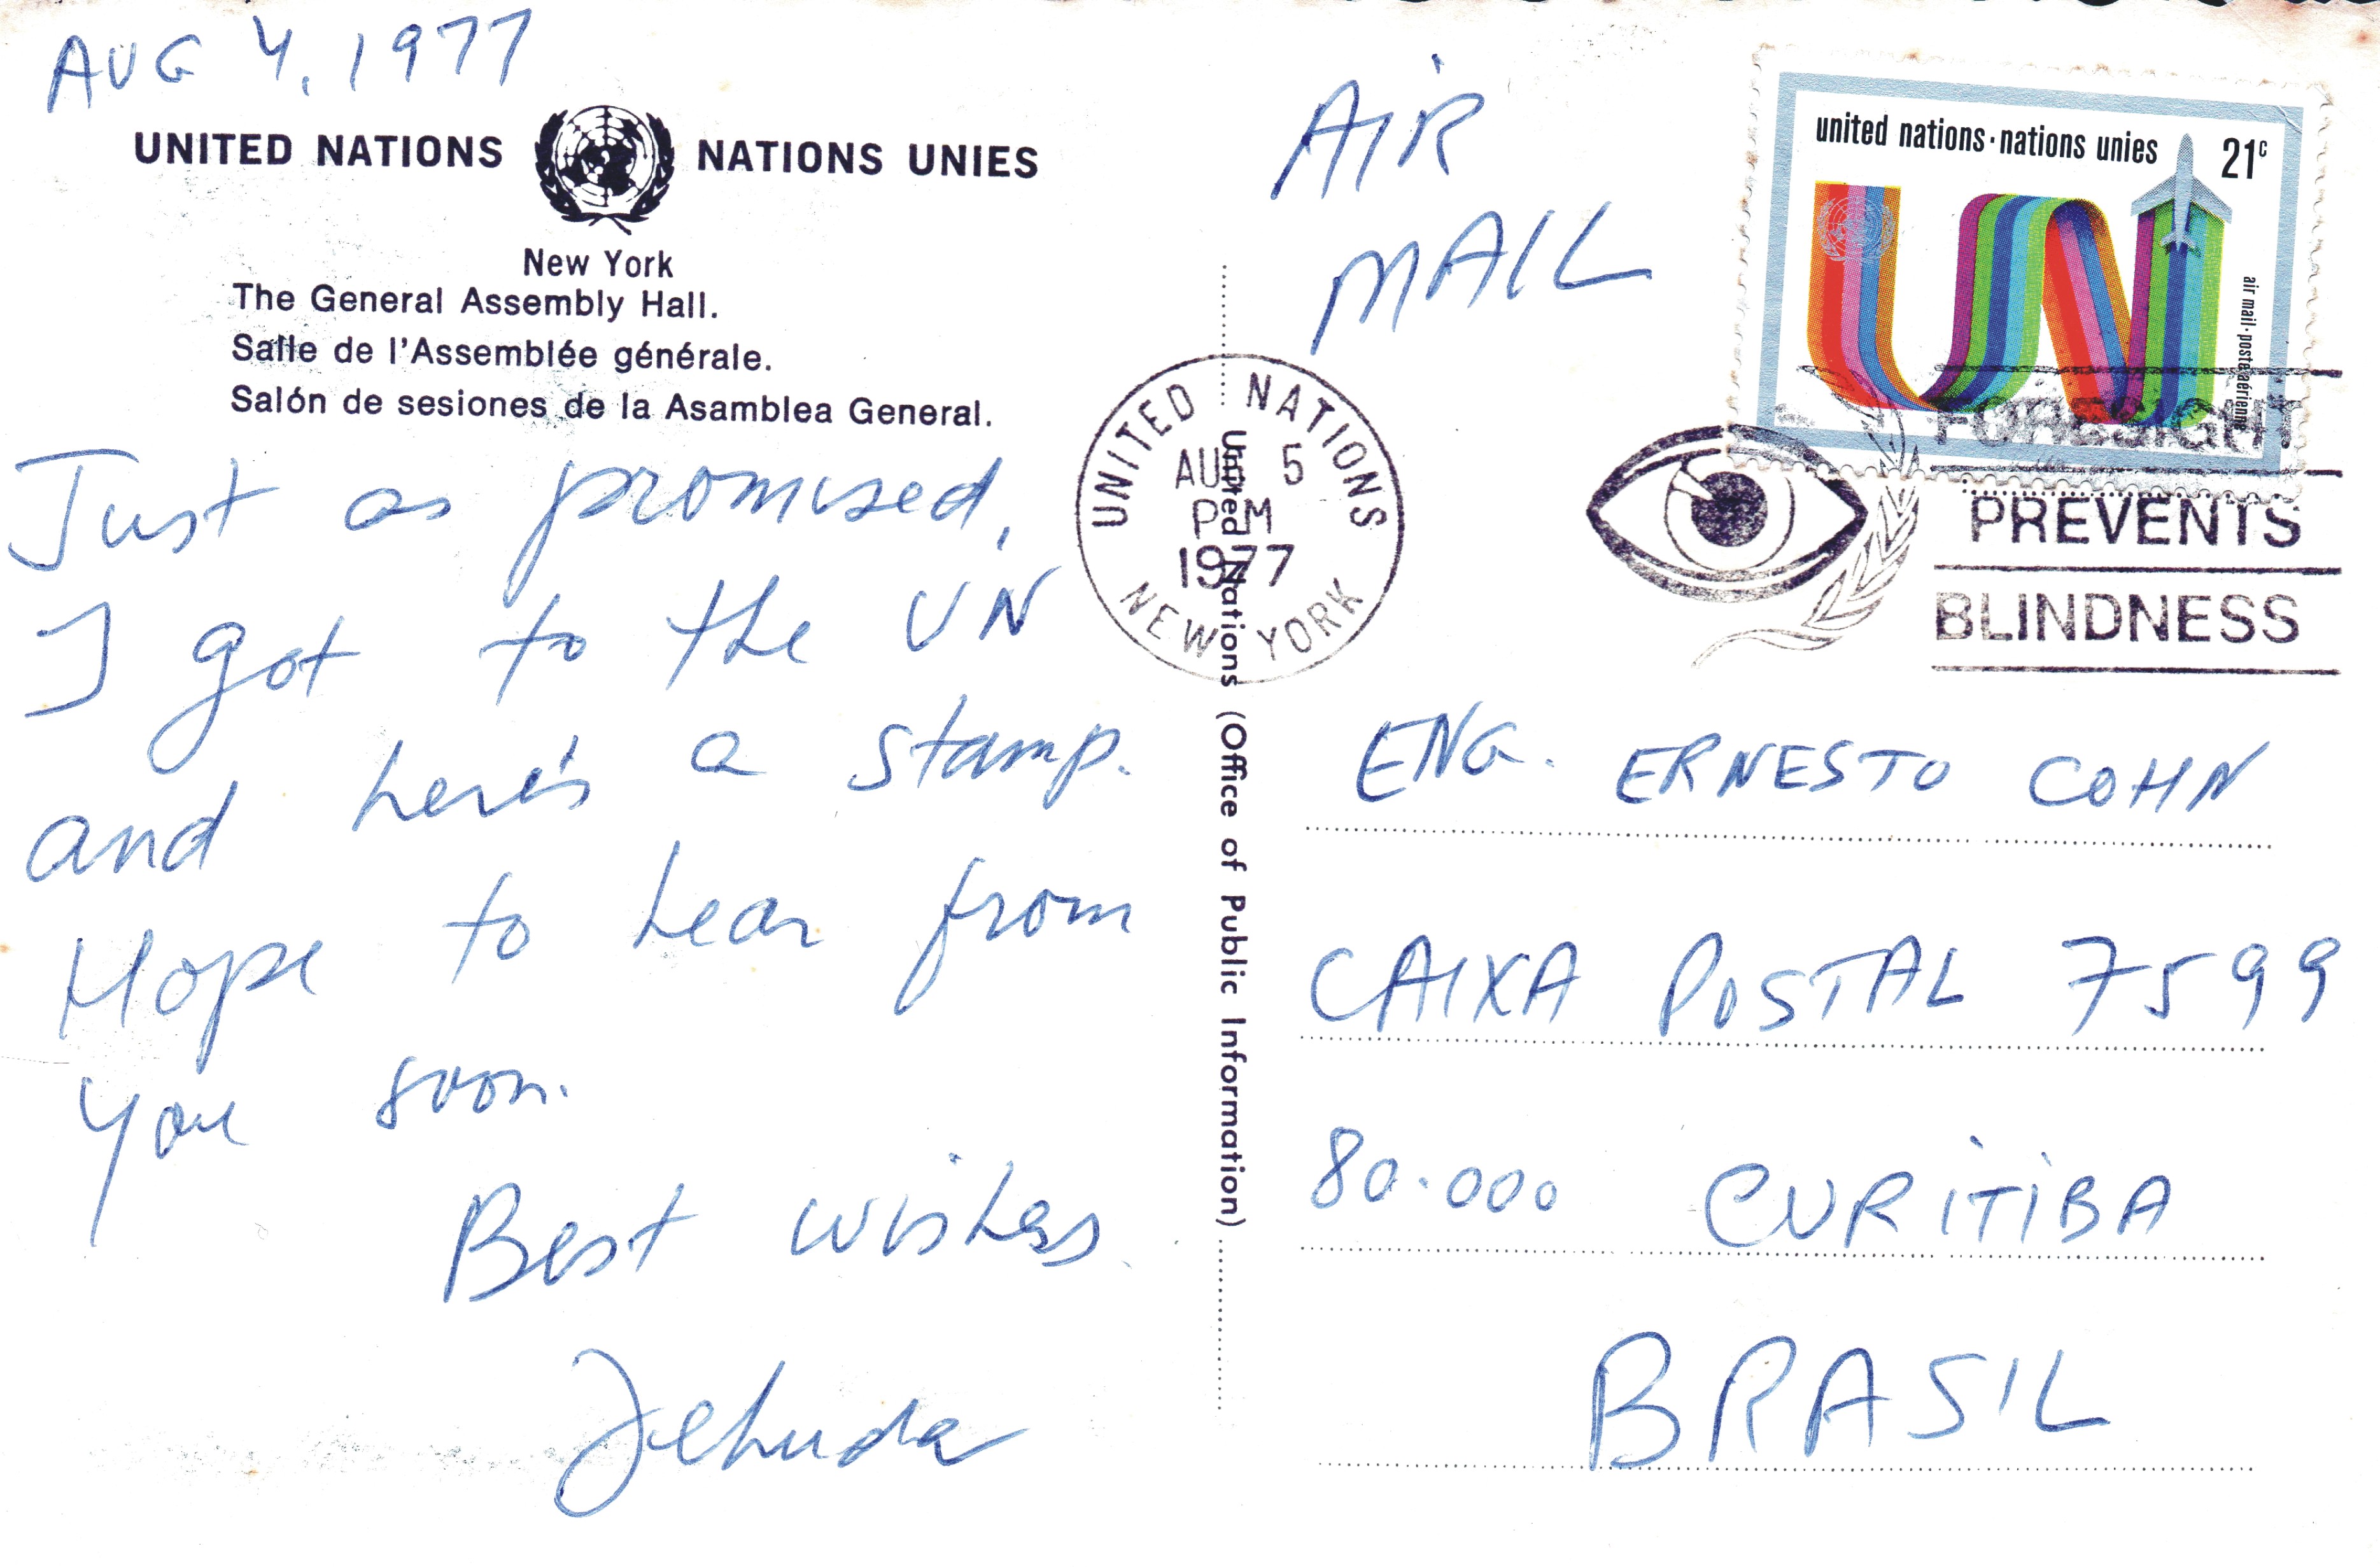 AUG 4, 1977
UNITED NATIONS NATIONS UNIES
New York
The General Assembly Hall.
Salle de l'Assemblée générale.
Salón de sesiones de la Asamblea General.
Just as promised,
I got to the UN
and here's a stamp.
Hope to hear from
you soon.
Best wishes.
Jehuda
United Nations (Office of Public Information)
AIR
MAIL
united nations · nations unies 21c
air mail · poste aérienne
UNITED NATIONS
AUG 5
PM
1977
NEW YORK
FORESIGHT
PREVENTS
BLINDNESS
ENG. ERNESTO COHN
CAIXA POSTAL 7599
80.000 CURITIBA
BRASIL